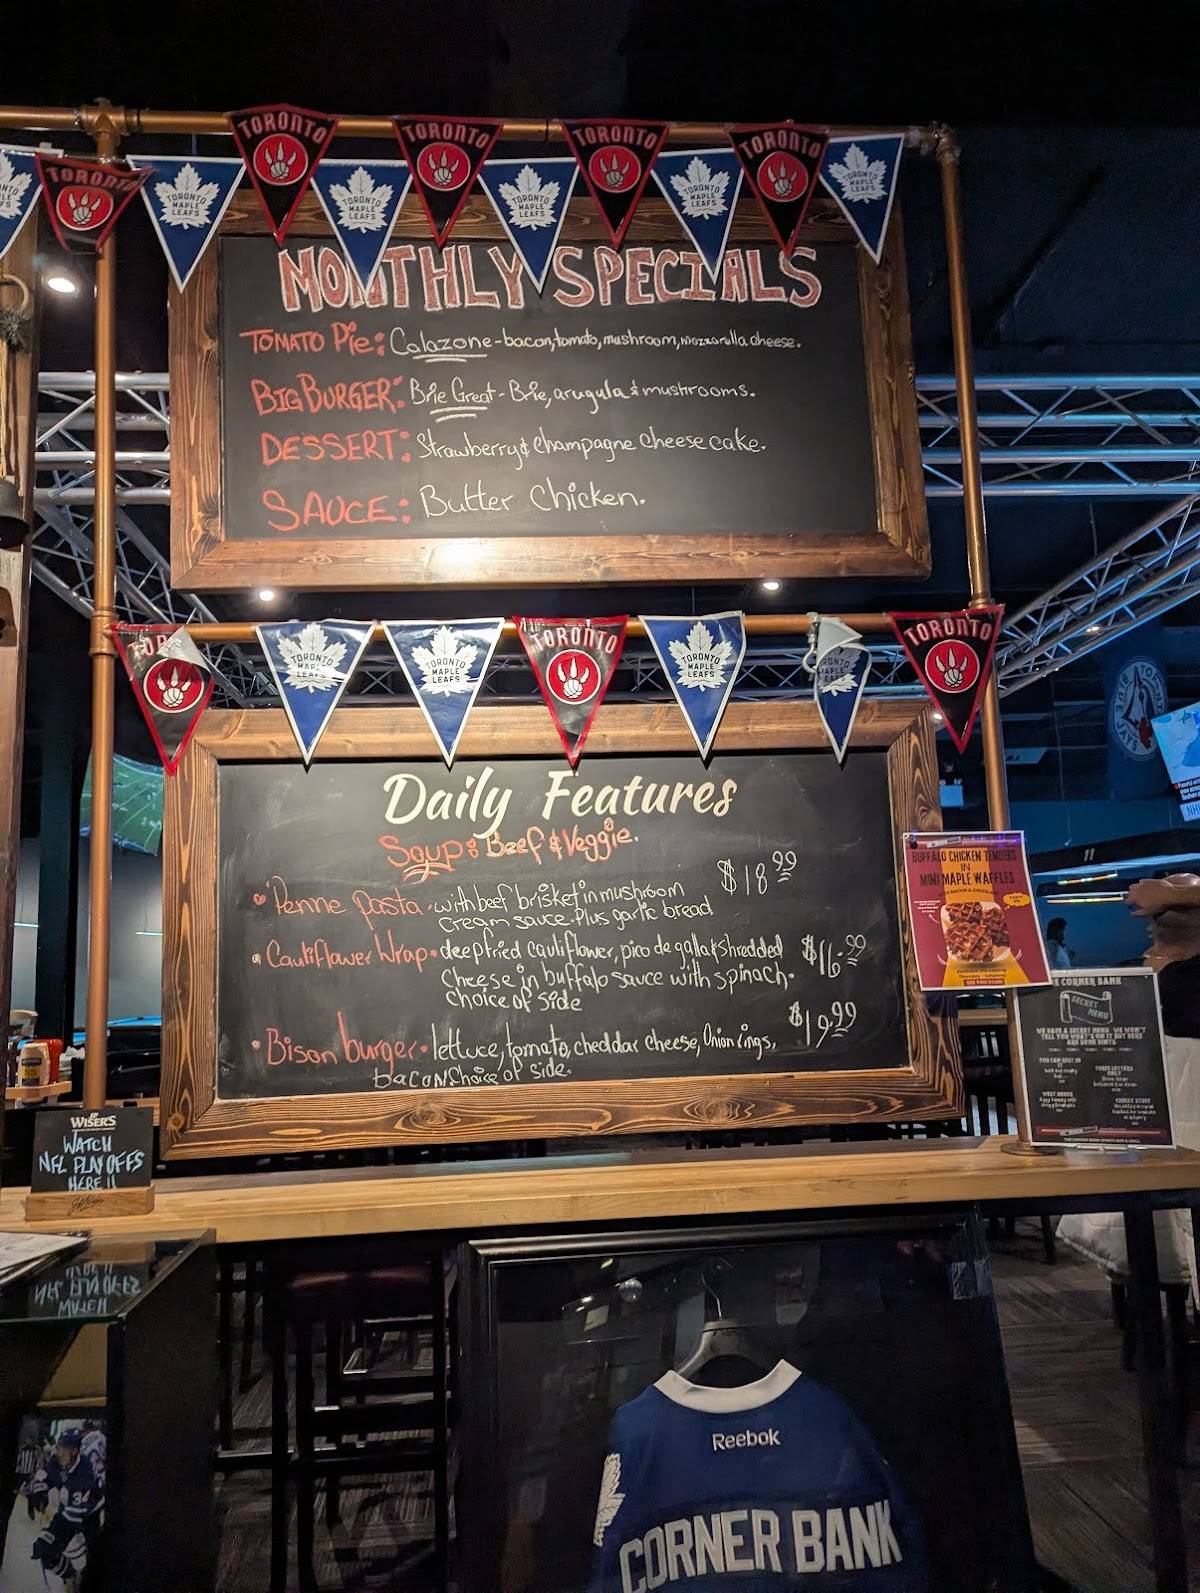 TORONTO
TORONTO
TORONTO
TORONTO
TORONTO
TORONTO MAPLE LEAFS
TORONTO MAPLE LEAFS
TORONTO MAPLE LEAFS
TORONTO MAPLE LEAFS
TORONTO MAPLE LEAFS
MONTHLY SPECIALS
TOMATO Pie: Calazone - bacon, tomato, mushroom, mozzarella cheese.
BIG BURGER: Brie Great - Brie, arugula & mushrooms.
DESSERT: Strawberry & Champagne Cheese cake.
SAUCE: Butter Chicken.
TORONTO MAPLE LEAFS
TORONTO MAPLE LEAFS
TORONTO
TORONTO MAPLE LEAFS
TORONTO
Daily Features
Soup: Beef & Veggie.
Penne pasta. with beef brisket in mushroom $18.99
cream sauce. Plus garlic bread
Cauliflower Wrap. deep fried cauliflower, pico de gallo & shredded $16.99
cheese in buffalo sauce with spinach.
choice of side
Bison burger. lettuce, tomato, cheddar cheese, Onion rings, $19.99
bacon choice of side.
BUFFALO CHICKEN TENDERS
IN
MINI MAPLE WAFFLES
THE CORNER BANK
SECRET
MENU
WE HAVE A SECRET MENU - WE WON'T
TELL YOU WHAT'S ON IT BUT HERE
ARE SOME HINTS.
J.P. WISER'S
WATCH
NFL PLAYOFFS
HERE!!
11
34
Reebok
CORNER BANK